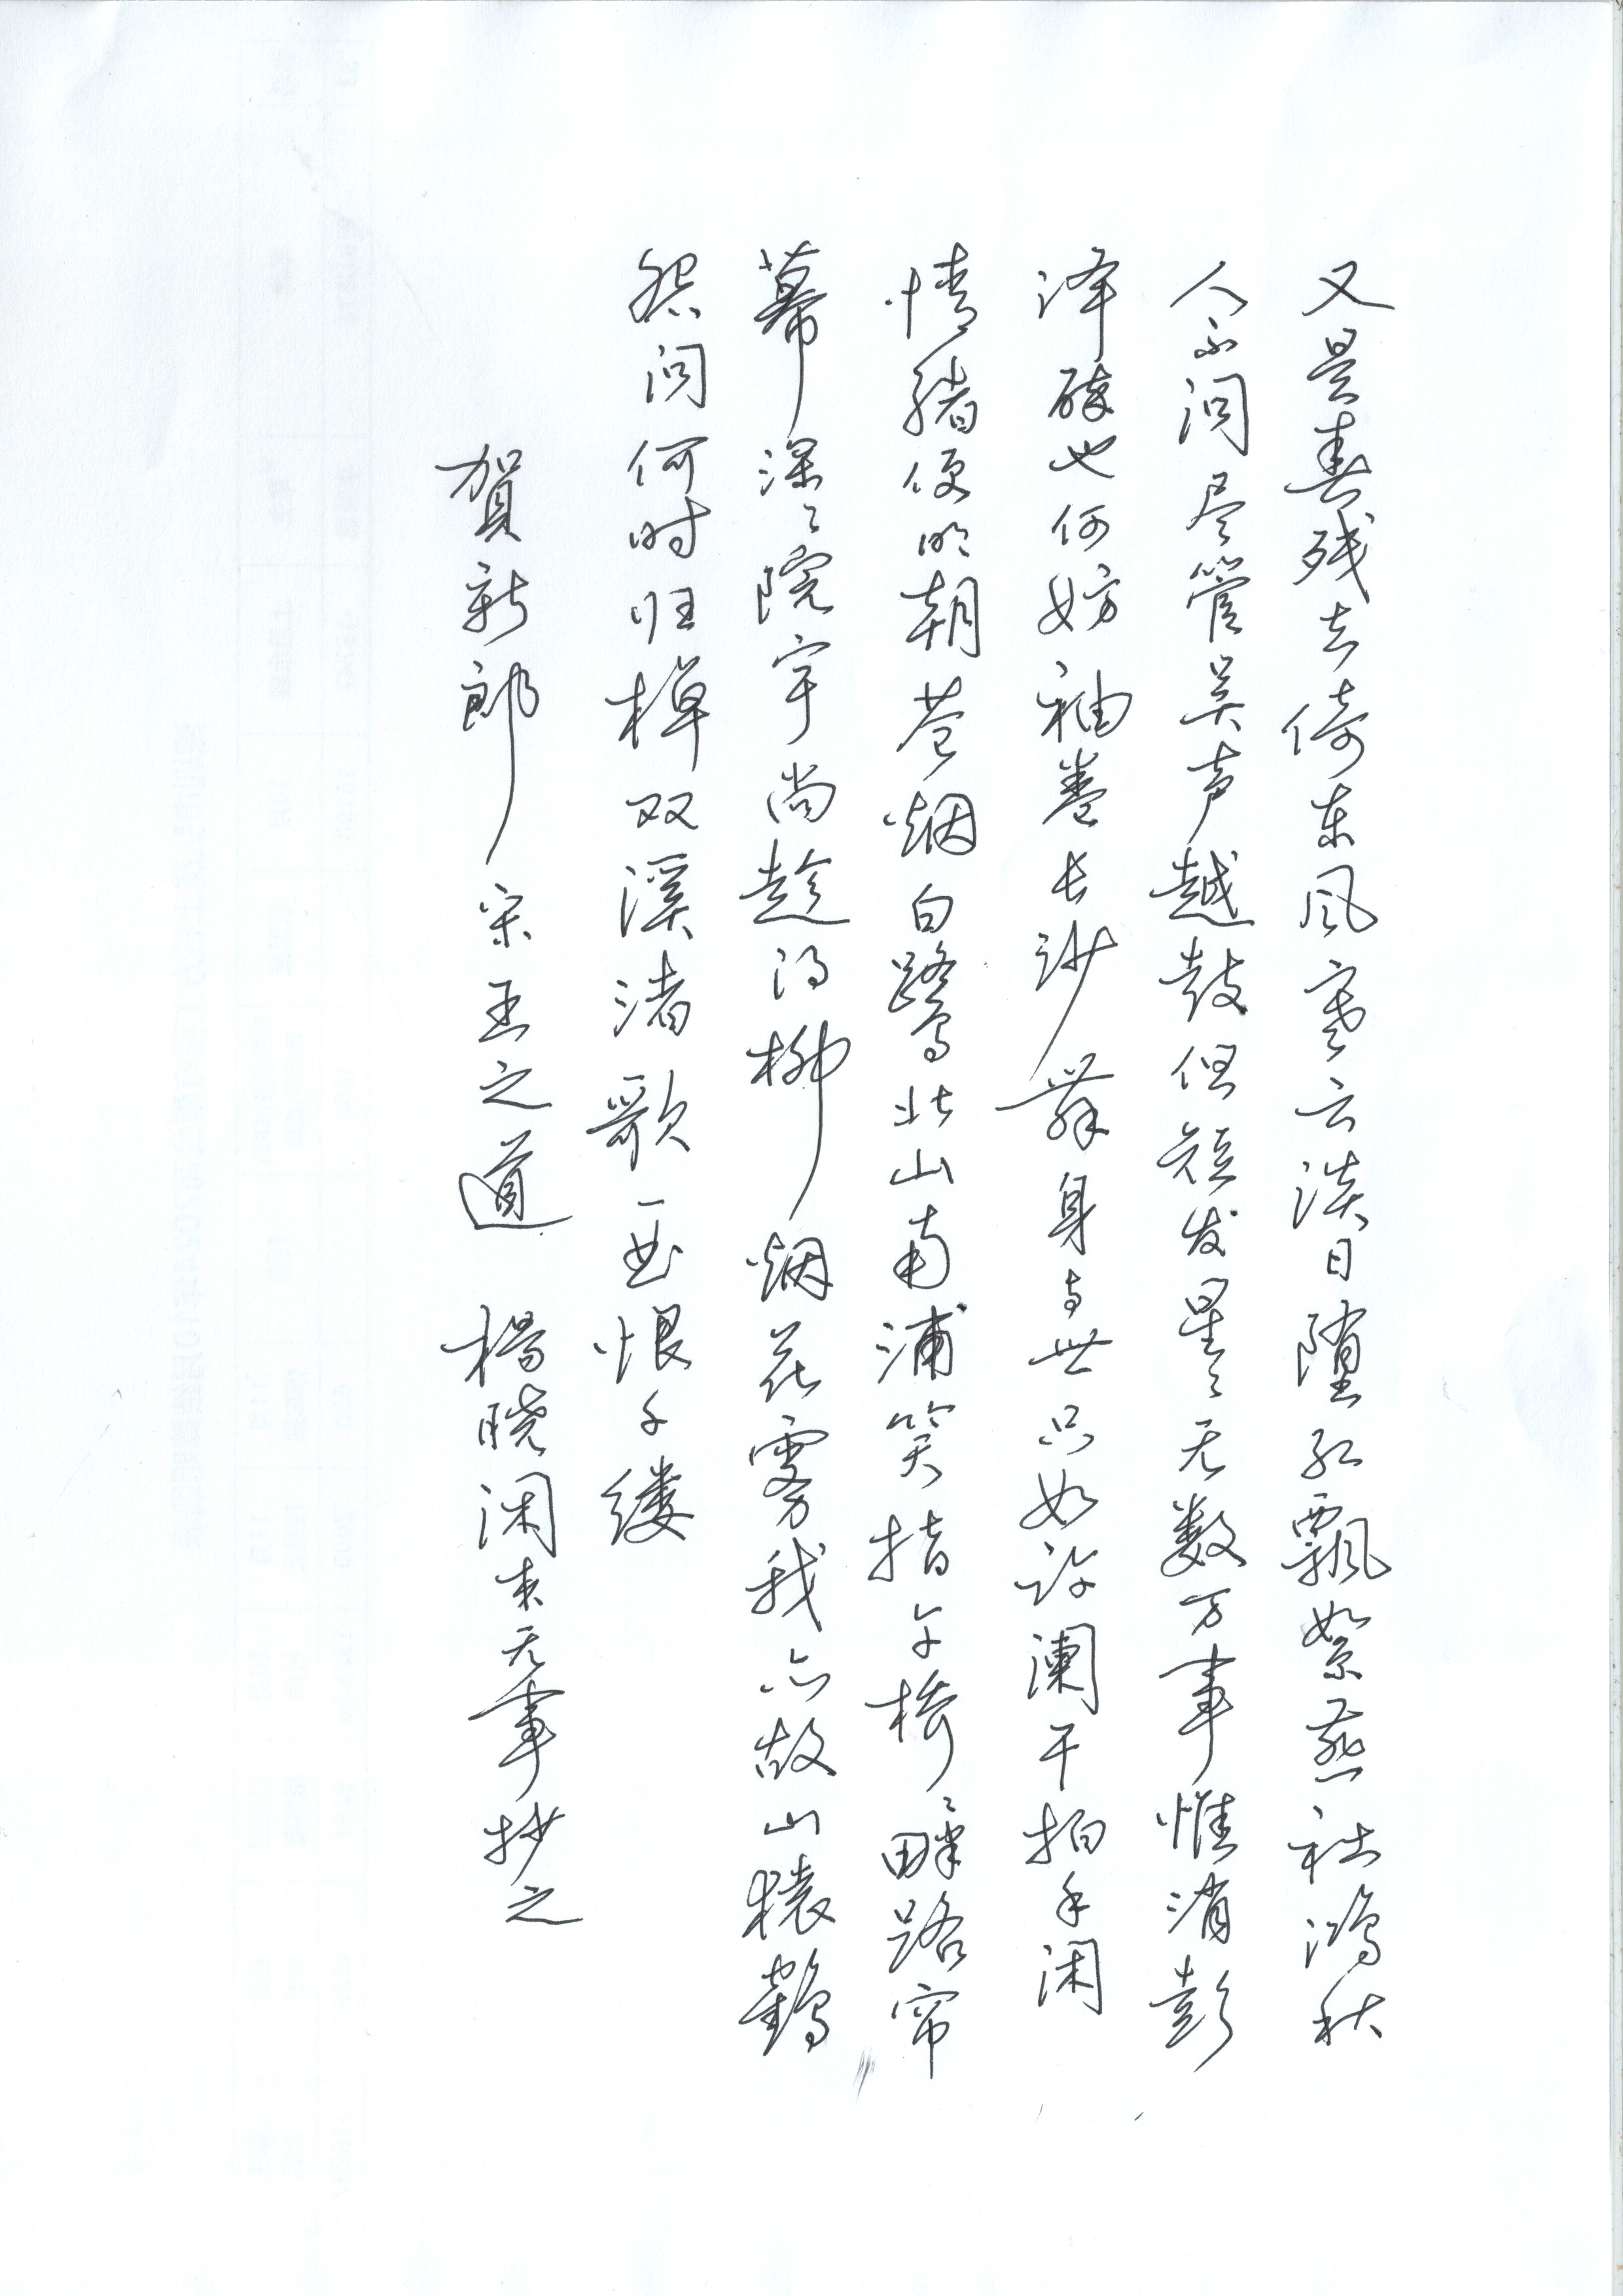 又是春残去倚东风寒云淡日堕红飘絮燕社鸿秋
人不问尽管吴声越鼓但短发星星无数万事惟消彭
泽醉也何妨袖卷长沙舞身与世只如许阑干拍手闲
情绪便明朝苍烟白鹭北山南浦笑指午桥桥畔路帘
幕深深院宇尚趁得柳烟花雾我亦故山猿鹤
怨问何时归棹双溪渚歌一曲恨千缕
賀新郎 宋王之道 楊晓闲来无事抄之